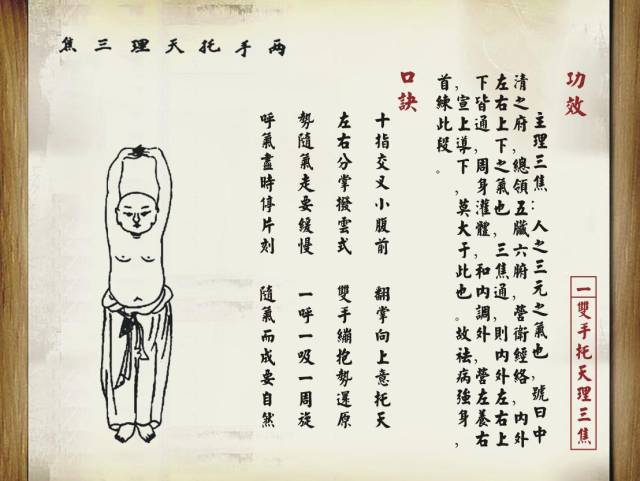 两手托天理三焦
一雙手托天理三焦
功效
主理三焦：人之三元之氣也，號曰中
清之府，總領五臟六腑，營衛經絡，內外
左右上下之氣也，三焦通，則內外左右上
下皆通，周身灌體，和內調外，營左養右
，宣上導下，莫大于此也。故祛病強身，
首練此段。
口訣
十指交叉小腹前 翻掌向上意托天
左右分掌撥雲式 雙手繃抱勢還原
勢隨氣走要緩慢 一呼一吸一周旋
呼氣盡時停片刻 隨氣而成要自然